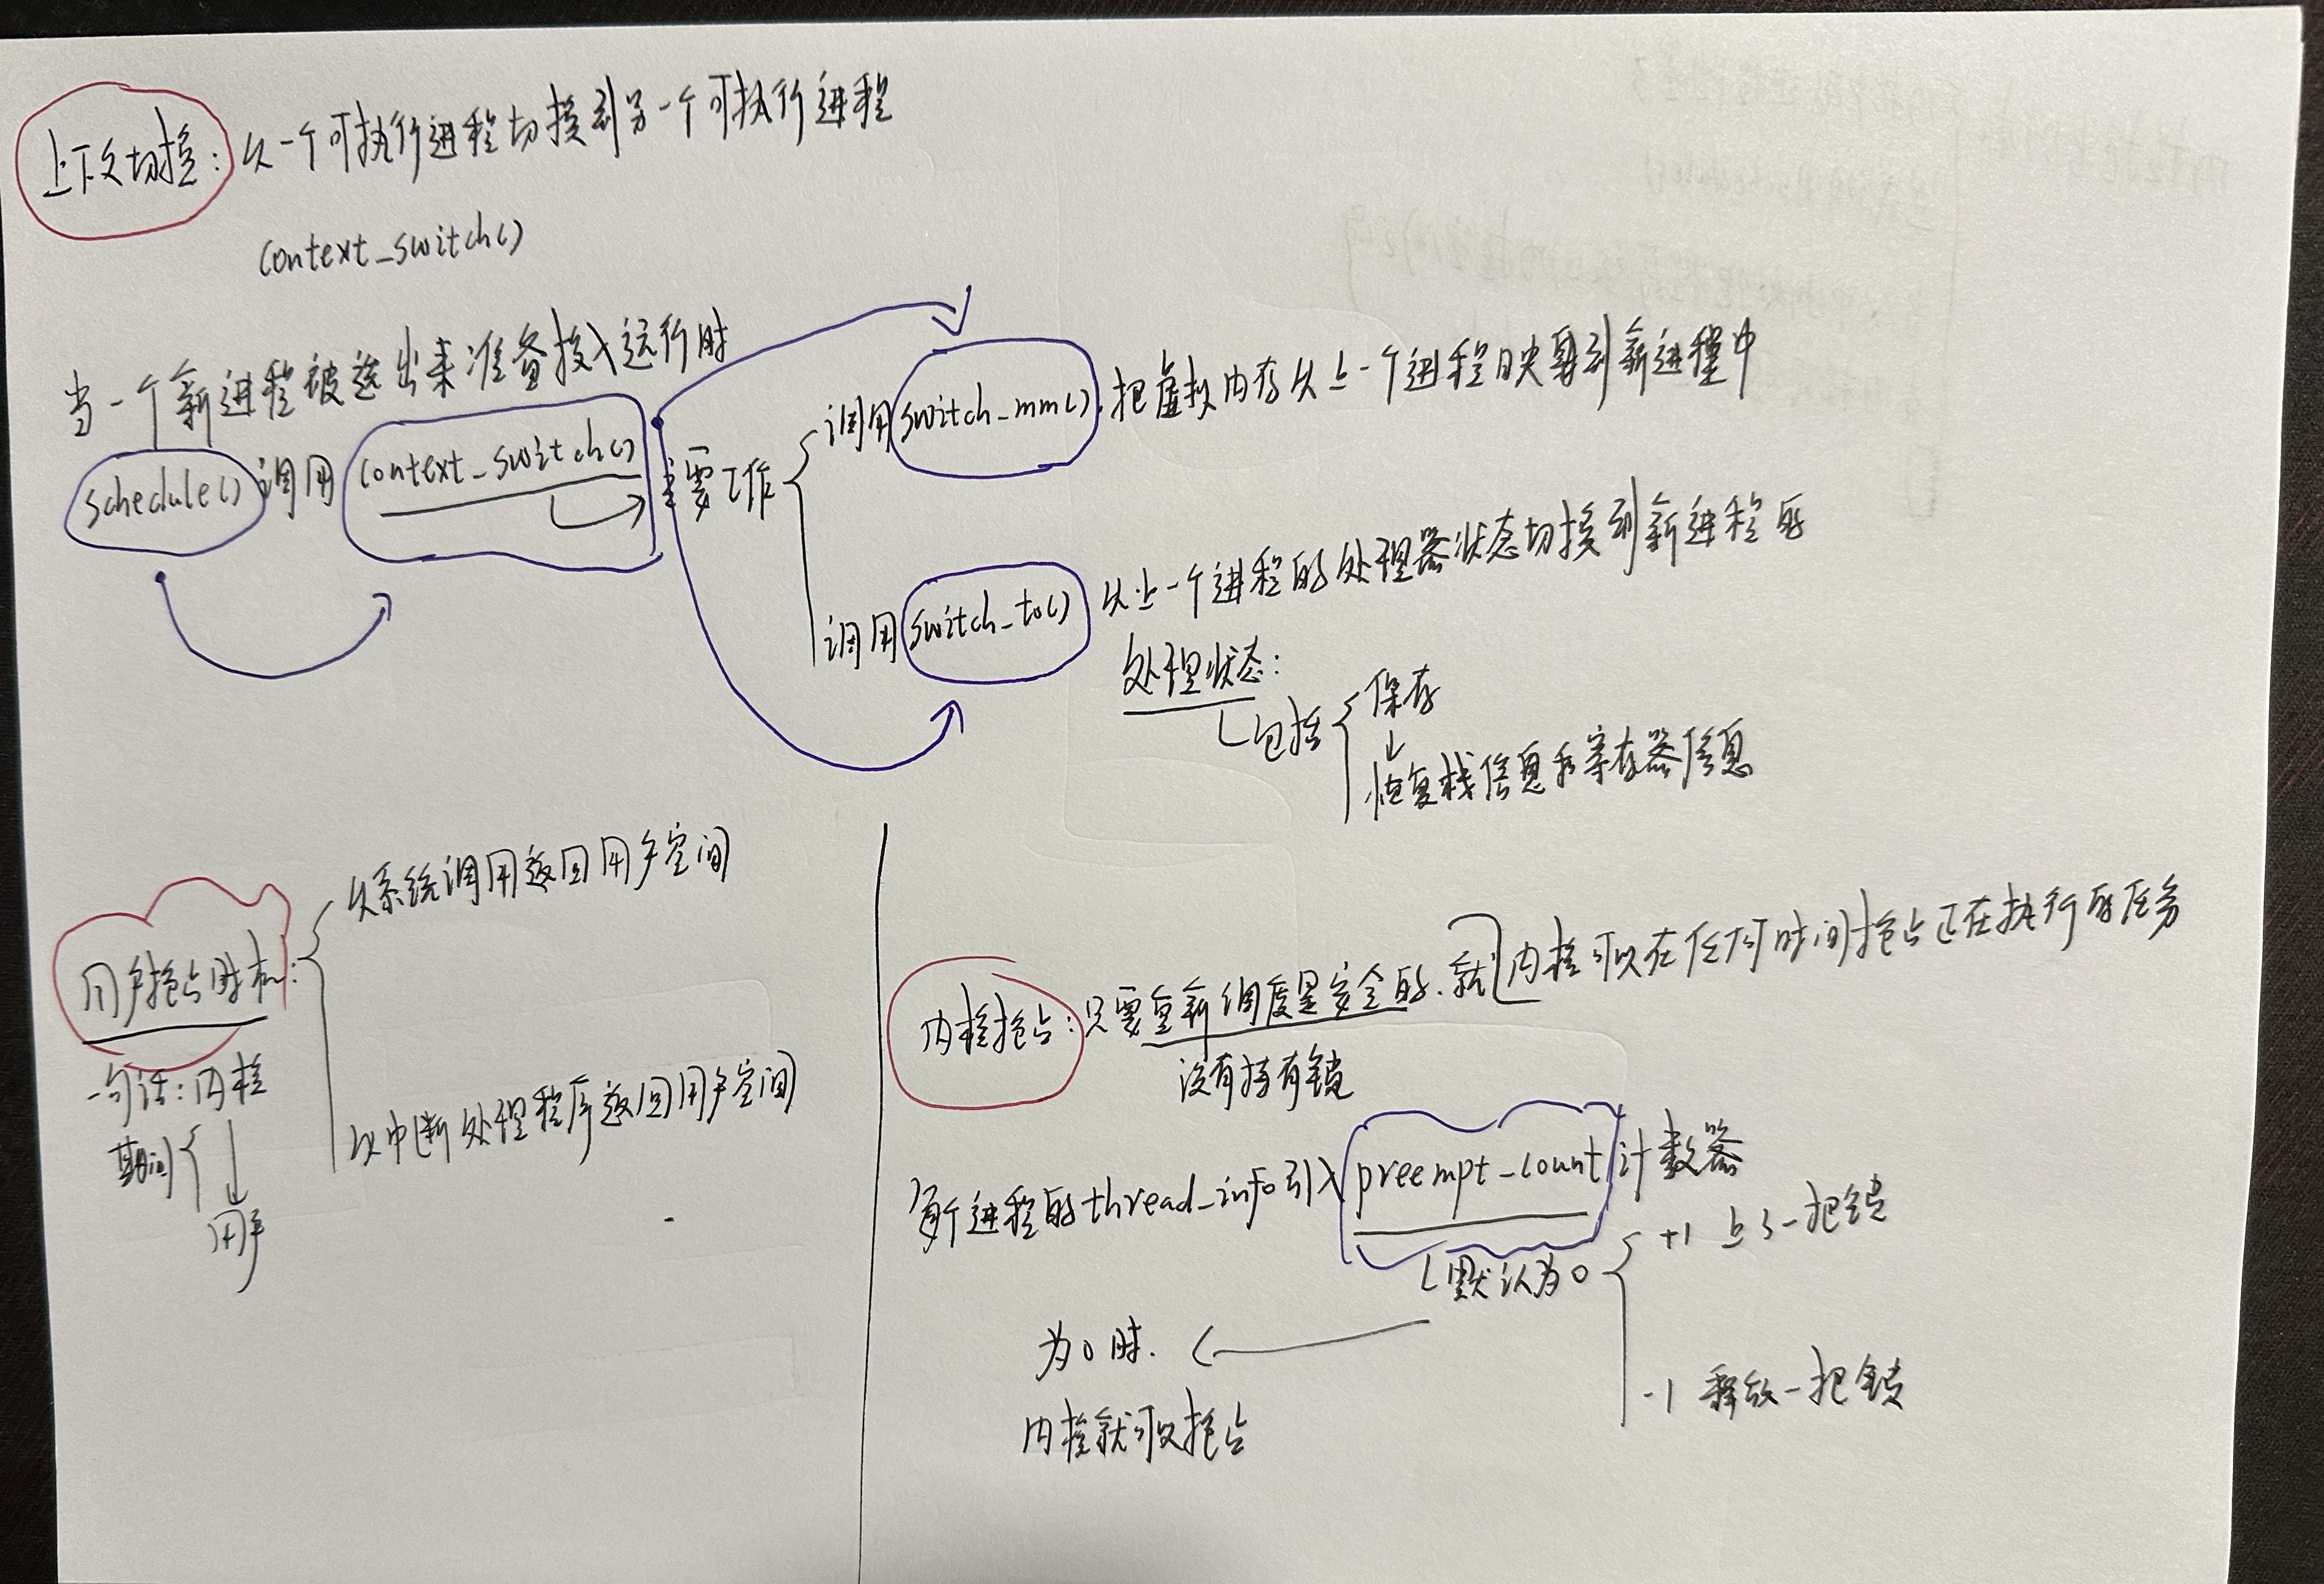 上下文切换：从一个可执行进程切换到另一个可执行进程
context_switch()
当一个新进程被选出来准备投入运行时
schedule()调用 context_switch() 主要工作
调用switch_mm()，把虚拟内存从上一个进程映射到新进程中
调用switch_to() 从上一个进程的处理器状态切换到新进程的
处理状态：
包括
保存
↓
恢复栈信息和寄存器信息
用户抢占时机：
从系统调用返回用户空间
从中断处理程序返回用户空间
一句话：内核
期间
↓
用户
内核抢占：只要重新调度是安全的，就 内核可以在任何时间抢占正在执行的任务
没有持有锁
每个进程的thread_info引入preempt_count计数器
默认为0
+1 上了一把锁
-1 释放一把锁
为0时.
内核就可以抢占